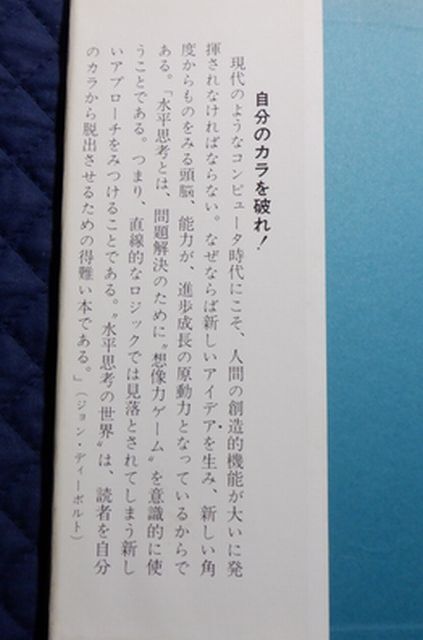 自分のカラを破れ！
現代のようなコンピュータ時代にこそ、人間の創造的機能が大いに発
揮されなければならない。なぜならば新しいアイデアを生み、新しい角
度からものをみる頭脳、能力が、進歩成長の原動力となっているからで
ある。「水平思考とは、問題解決のために〝想像力ゲーム〟を意識的に使
うことである。つまり、直線的なロジックでは見落とされてしまう新し
いアプローチをみつけることである。〝水平思考の世界〟は、読者を自分
のカラから脱出させるための得難い本である。」（ジョン・ディーボルト）